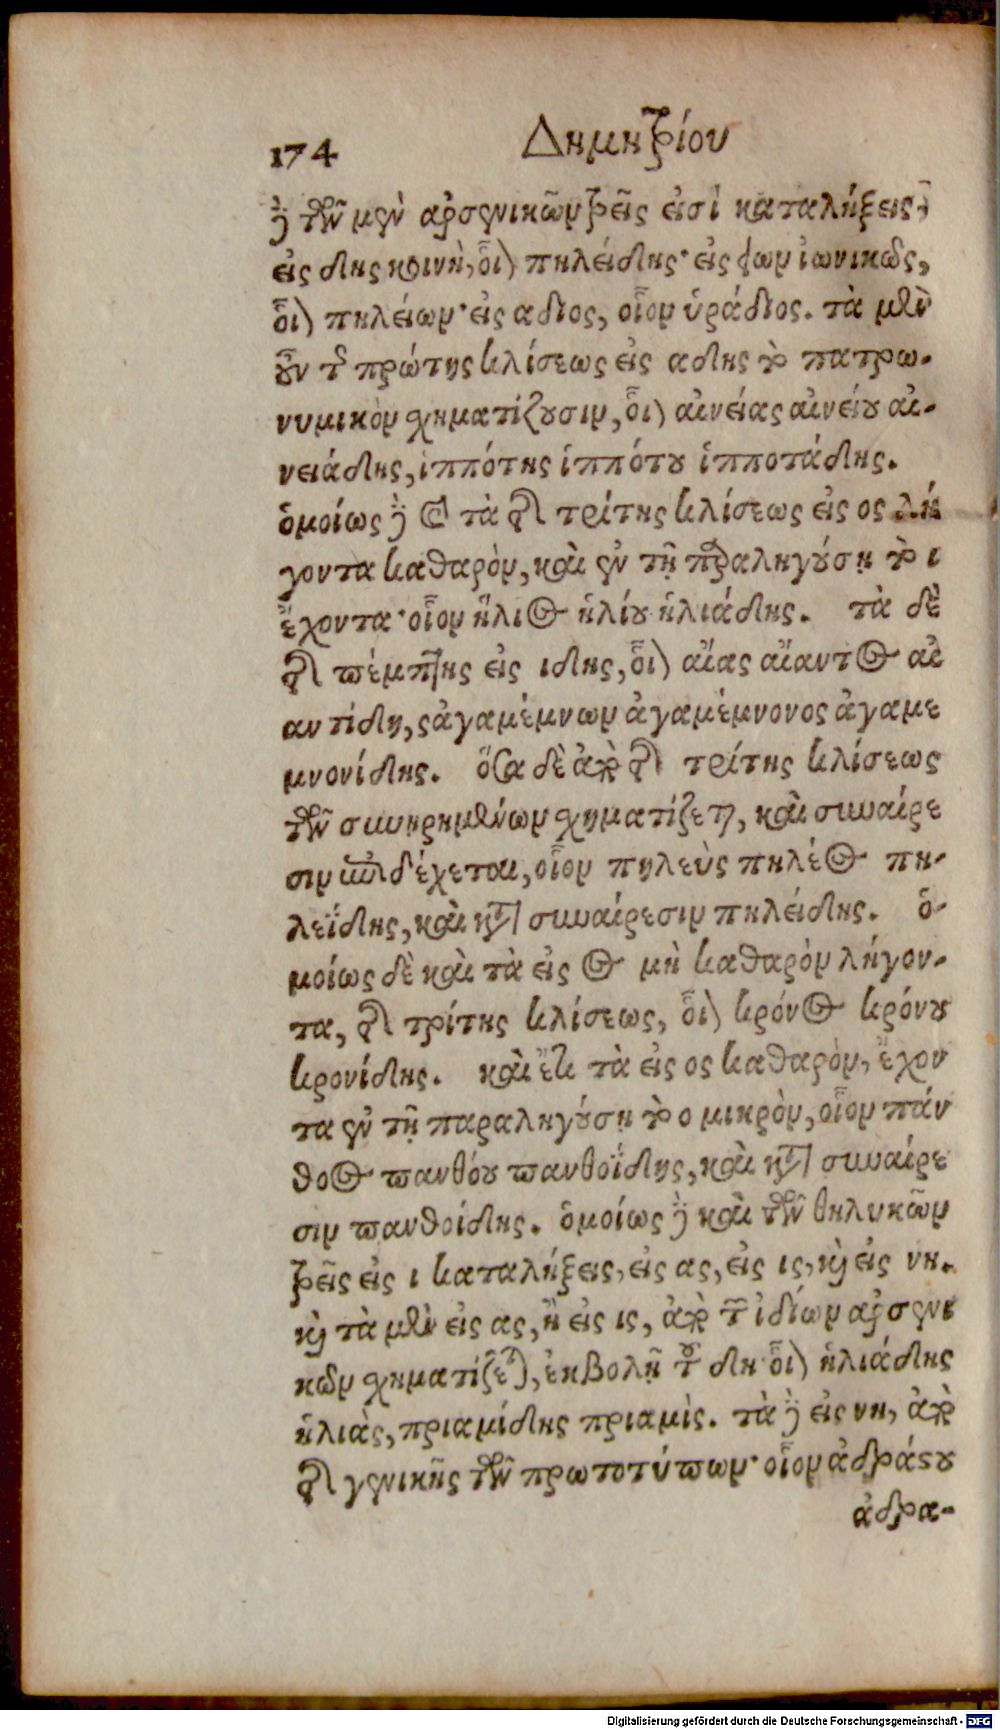 174 Δημητρίου
δὲ τῶν μὲν ἀρσενικῶν τρεῖς εἰσὶ καταλήξεις,
εἰς δης κοινὴ, οἷον πηλείδης· εἰς ίων ἰωνικῶς,
οἷον πηλείων· εἰς αδιος, οἷον ὑράδιος. τὰ μὲν
οὖν τῆς πρώτης κλίσεως εἰς αδης τὸ πατρω-
νυμικὸν σχηματίζουσιν, οἷον αἰνείας αἰνείου αἰ-
νειάδης, ἱππότης ἱππότου ἱπποτάδης.
ὁμοίως δὲ καὶ τὰ τῆς τρίτης κλίσεως εἰς ος λή
γοντα καθαρὸν, καὶ ἐν τῇ παραληγούσῃ τὸ ι
ἔχοντα· οἷον ἥλιος ἡλίου ἡλιάδης. τὰ δὲ
τῆς πέμπτης εἰς ιδης, οἷον αἴας αἴαντος αἰ
αντίδη,ς ἀγαμέμνων ἀγαμέμνονος ἀγαμε
μνονίδης. ὅσα δὲ ἀπὸ τῆς τρίτης κλίσεως
τῶν συνῃρημένων σχηματίζεται, καὶ συναίρε
σιν ἐπιδέχεται, οἷον πηλεὺς πηλέος πη-
λεΐδης, καὶ κατὰ συναίρεσιν πηλείδης. ὁ-
μοίως δὲ καὶ τὰ εἰς ος μὴ καθαρὸν λήγον-
τα, τῆς τρίτης κλίσεως, οἷον κρόνος κρόνου
κρονίδης. καὶ ἔτι τὰ εἰς ος καθαρὸν, ἔχον
τα ἐν τῇ παραληγούσῃ τὸ ο μικρὸν, οἷον πάν
θοος πανθόου πανθοΐδης, καὶ κατὰ συναίρε
σιν πανθοίδης. ὁμοίως δὲ καὶ τῶν θηλυκῶν
τρεῖς εἰς ι καταλήξεις, εἰς ας, εἰς ις, καὶ εἰς νη.
καὶ τὰ μὲν εἰς ας, ἢ εἰς ις, ἀπὸ τῶν ἰδίων ἀρσενι
κῶν σχηματίζεται, ἐκβολῇ τοῦ δη οἷον ἡλιάδης
ἡλιὰς, πριαμίδης πριαμὶς. τὰ δὲ εἰς νη, ἀπὸ
τῆς γενικῆς τῶν πρωτοτύπων· οἷον ἀδράστου
ἀδρα-
Digitalisierung gefördert durch die Deutsche Forschungsgemeinschaft - DFG